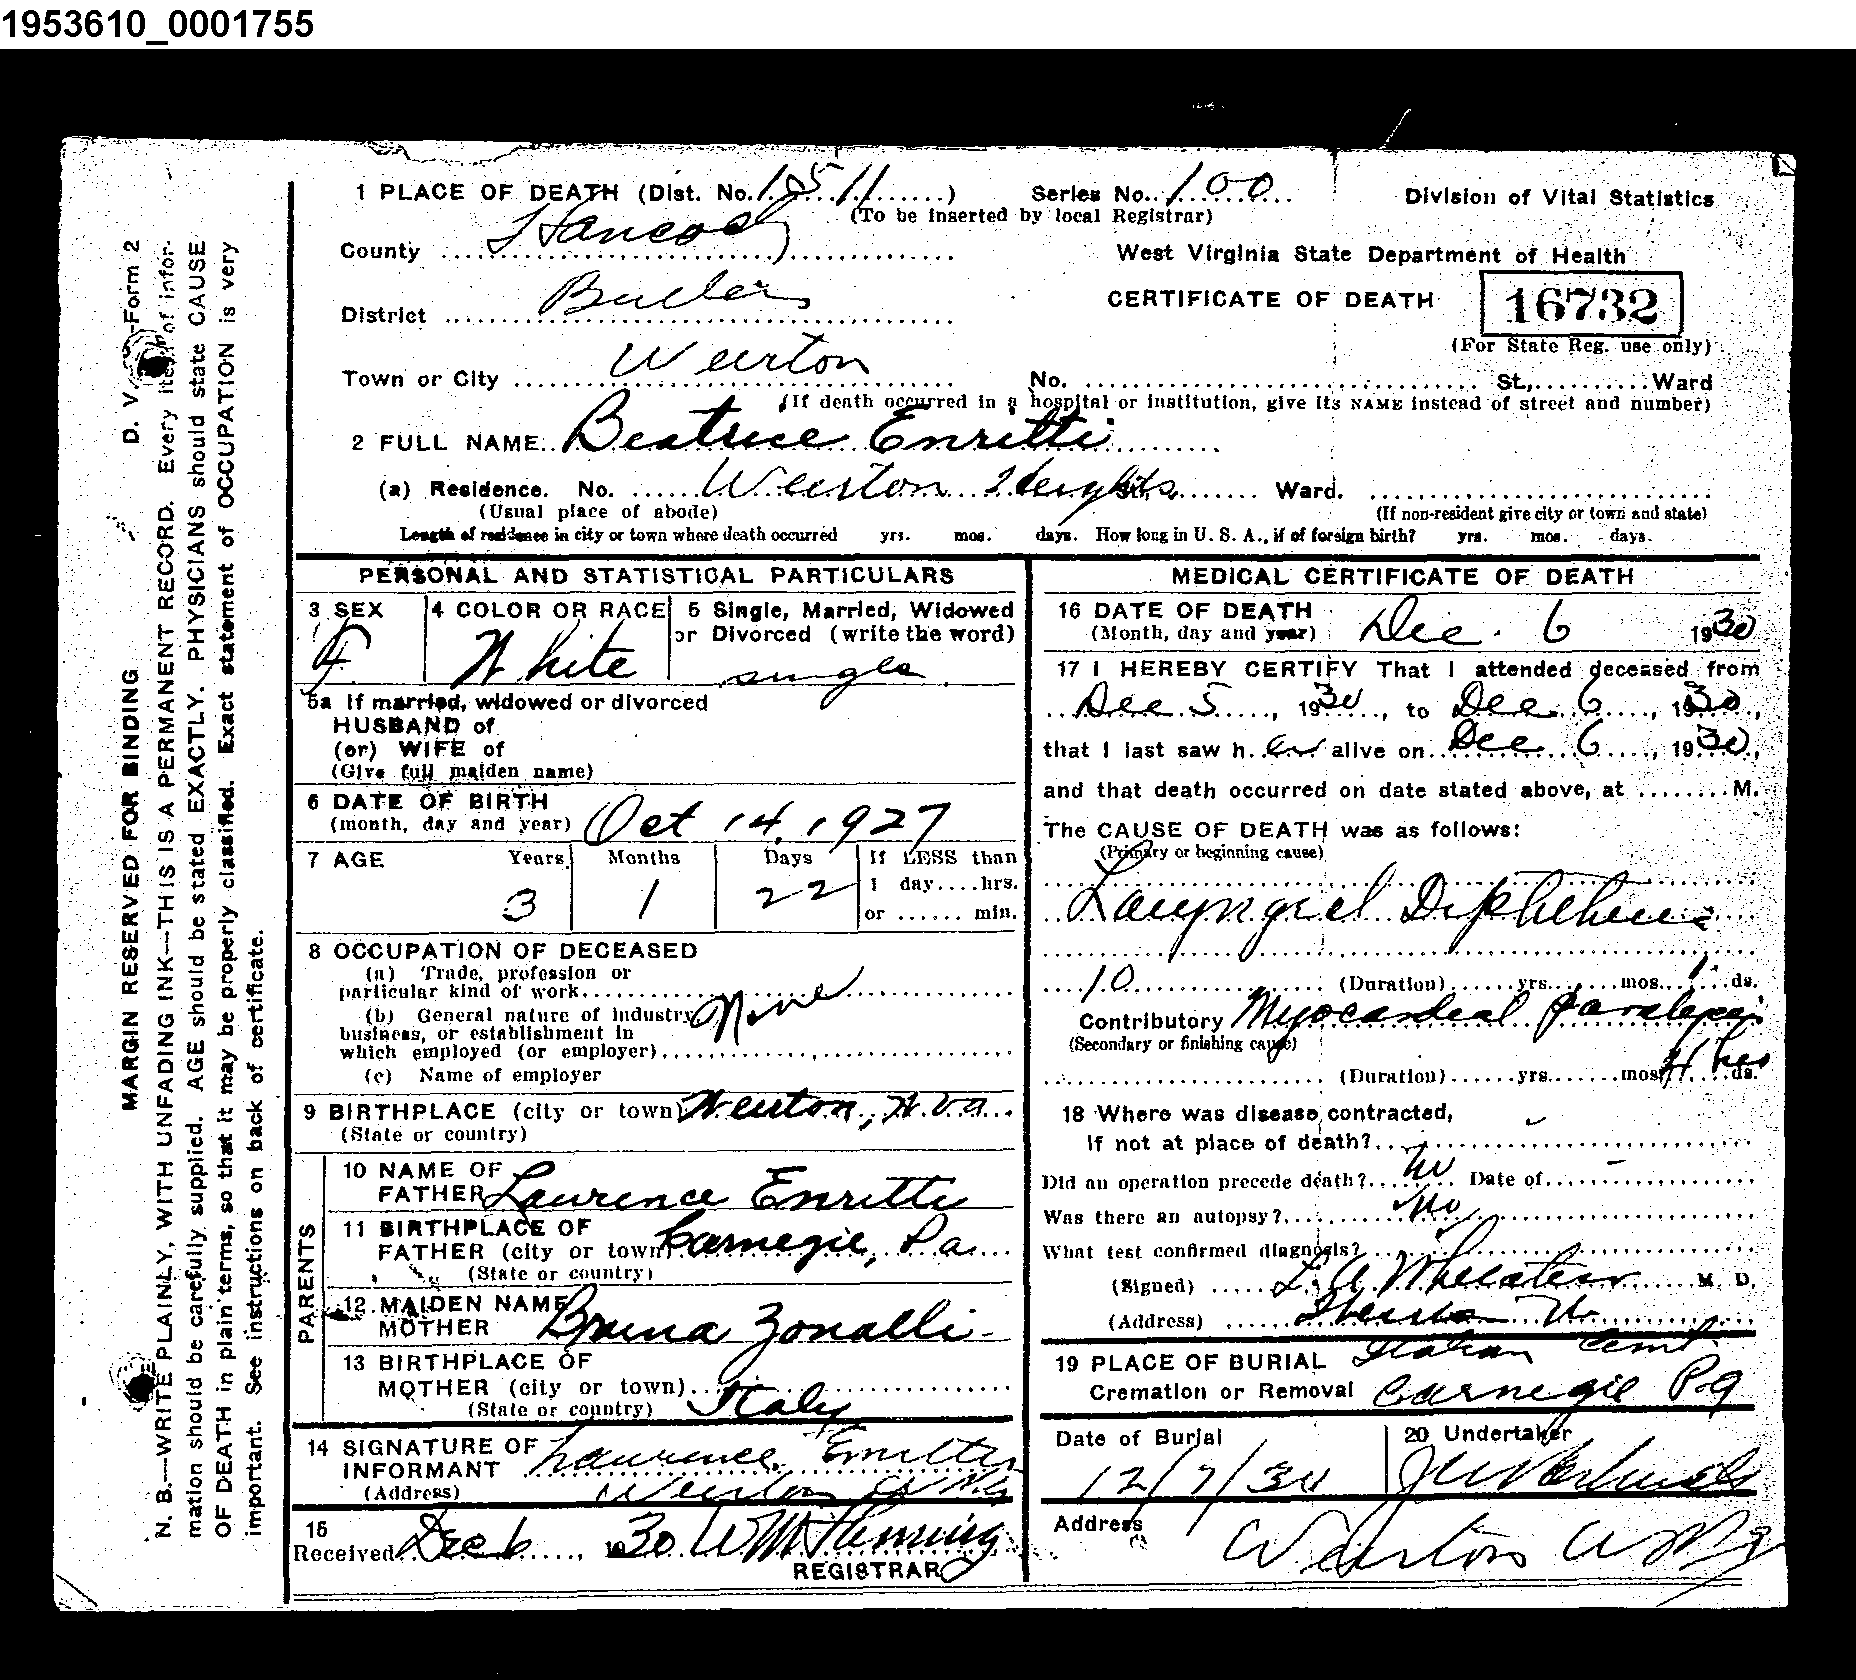 1953610_0001755
1 PLACE OF DEATH (Dist. No. 1511) Series No. 100 Division of Vital Statistics
(To be inserted by local Registrar)
County Hancock West Virginia State Department of Health
CERTIFICATE OF DEATH 16732
District Butler
(For State Reg. use only)
Town or City Weirton No. St., Ward
(If death occurred in a hospital or institution, give its NAME instead of street and number)
2 FULL NAME Beatrice Enritti
(a) Residence. No. Weirton Heights St. Ward.
(Usual place of abode) (If non-resident give city or town and state)
Length of residence in city or town where death occurred yrs. mos. days. How long in U. S. A., if of foreign birth? yrs. mos. days.
PERSONAL AND STATISTICAL PARTICULARS
3 SEX 4 COLOR OR RACE 5 Single, Married, Widowed
or Divorced (write the word)
F White single
5a If married, widowed or divorced
HUSBAND of
(or) WIFE of
(Give full maiden name)
6 DATE OF BIRTH
(month, day and year) Oct 14, 1927
7 AGE Years Months Days If LESS than
1 day....hrs.
3 1 22
or ...... min.
8 OCCUPATION OF DECEASED
(a) Trade, profession or
particular kind of work
(b) General nature of industry None
business, or establishment in
which employed (or employer)
(c) Name of employer
9 BIRTHPLACE (city or town) Weirton, W. Va.
(State or country)
PARENTS
10 NAME OF
FATHER Laurence Enritti
11 BIRTHPLACE OF
FATHER (city or town) Carnegie, Pa.
(State or country)
12 MAIDEN NAME
MOTHER Bruna Zonalli
13 BIRTHPLACE OF
MOTHER (city or town)
(State or country) Italy
14 SIGNATURE OF
INFORMANT Laurence Enritti
(Address) Weirton W. Va.
15
Received Dec 6, 1930 W M Fleming
REGISTRAR
MEDICAL CERTIFICATE OF DEATH
16 DATE OF DEATH
(Month, day and year) Dec. 6 1930
17 I HEREBY CERTIFY That I attended deceased from
Dec 5, 1930, to Dec 6, 1930,
that I last saw h er alive on Dec 6, 1930,
and that death occurred on date stated above, at M.
The CAUSE OF DEATH was as follows:
(Primary or beginning cause)
Laryngiel Diphtheria
10 (Duration) yrs. mos. 1 ds.
Contributory Myocardial paralysis
(Secondary or finishing cause)
(Duration) yrs. mos. 4 hrs ds.
18 Where was disease contracted,
If not at place of death?
Did an operation precede death? no Date of
Was there an autopsy? No
What test confirmed diagnosis?
(Signed) L. A. M. D.
(Address)
19 PLACE OF BURIAL Italian Cemt.
Cremation or Removal Carnegie Pa
Date of Burial 20 Undertaker
12/7/30
Address
Weirton W Va
MARGIN RESERVED FOR BINDING D. V. Form 2
N. B.—WRITE PLAINLY, WITH UNFADING INK—THIS IS A PERMANENT RECORD. Every item of infor-
mation should be carefully supplied. AGE should be stated EXACTLY. PHYSICIANS should state CAUSE
OF DEATH in plain terms, so that it may be properly classified. Exact statement of OCCUPATION is very
important. See instructions on back of certificate.